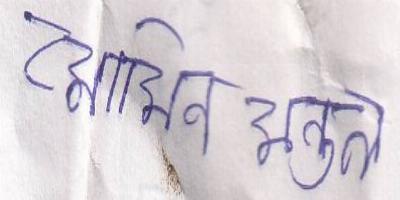 মোমিন মন্ডল